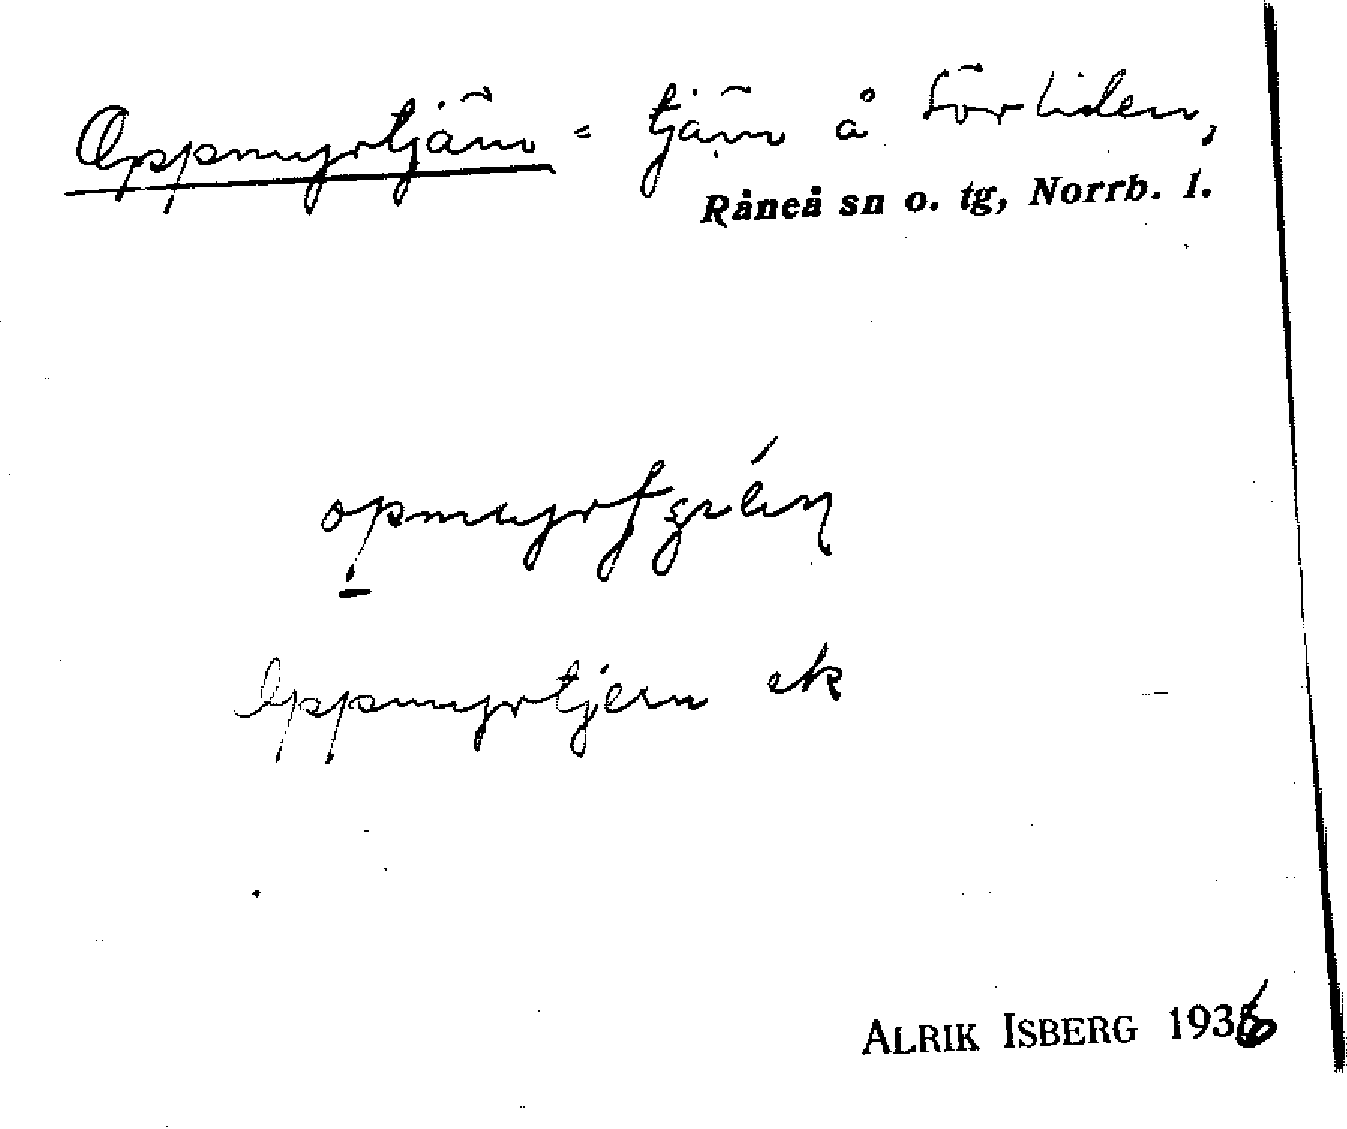 Oppmyrtjärn = tjärn å Sörliden,
Råneå sn o. tg, Norrb. l.
Oppmyrtjern ek
ALRIK ISBERG 1936